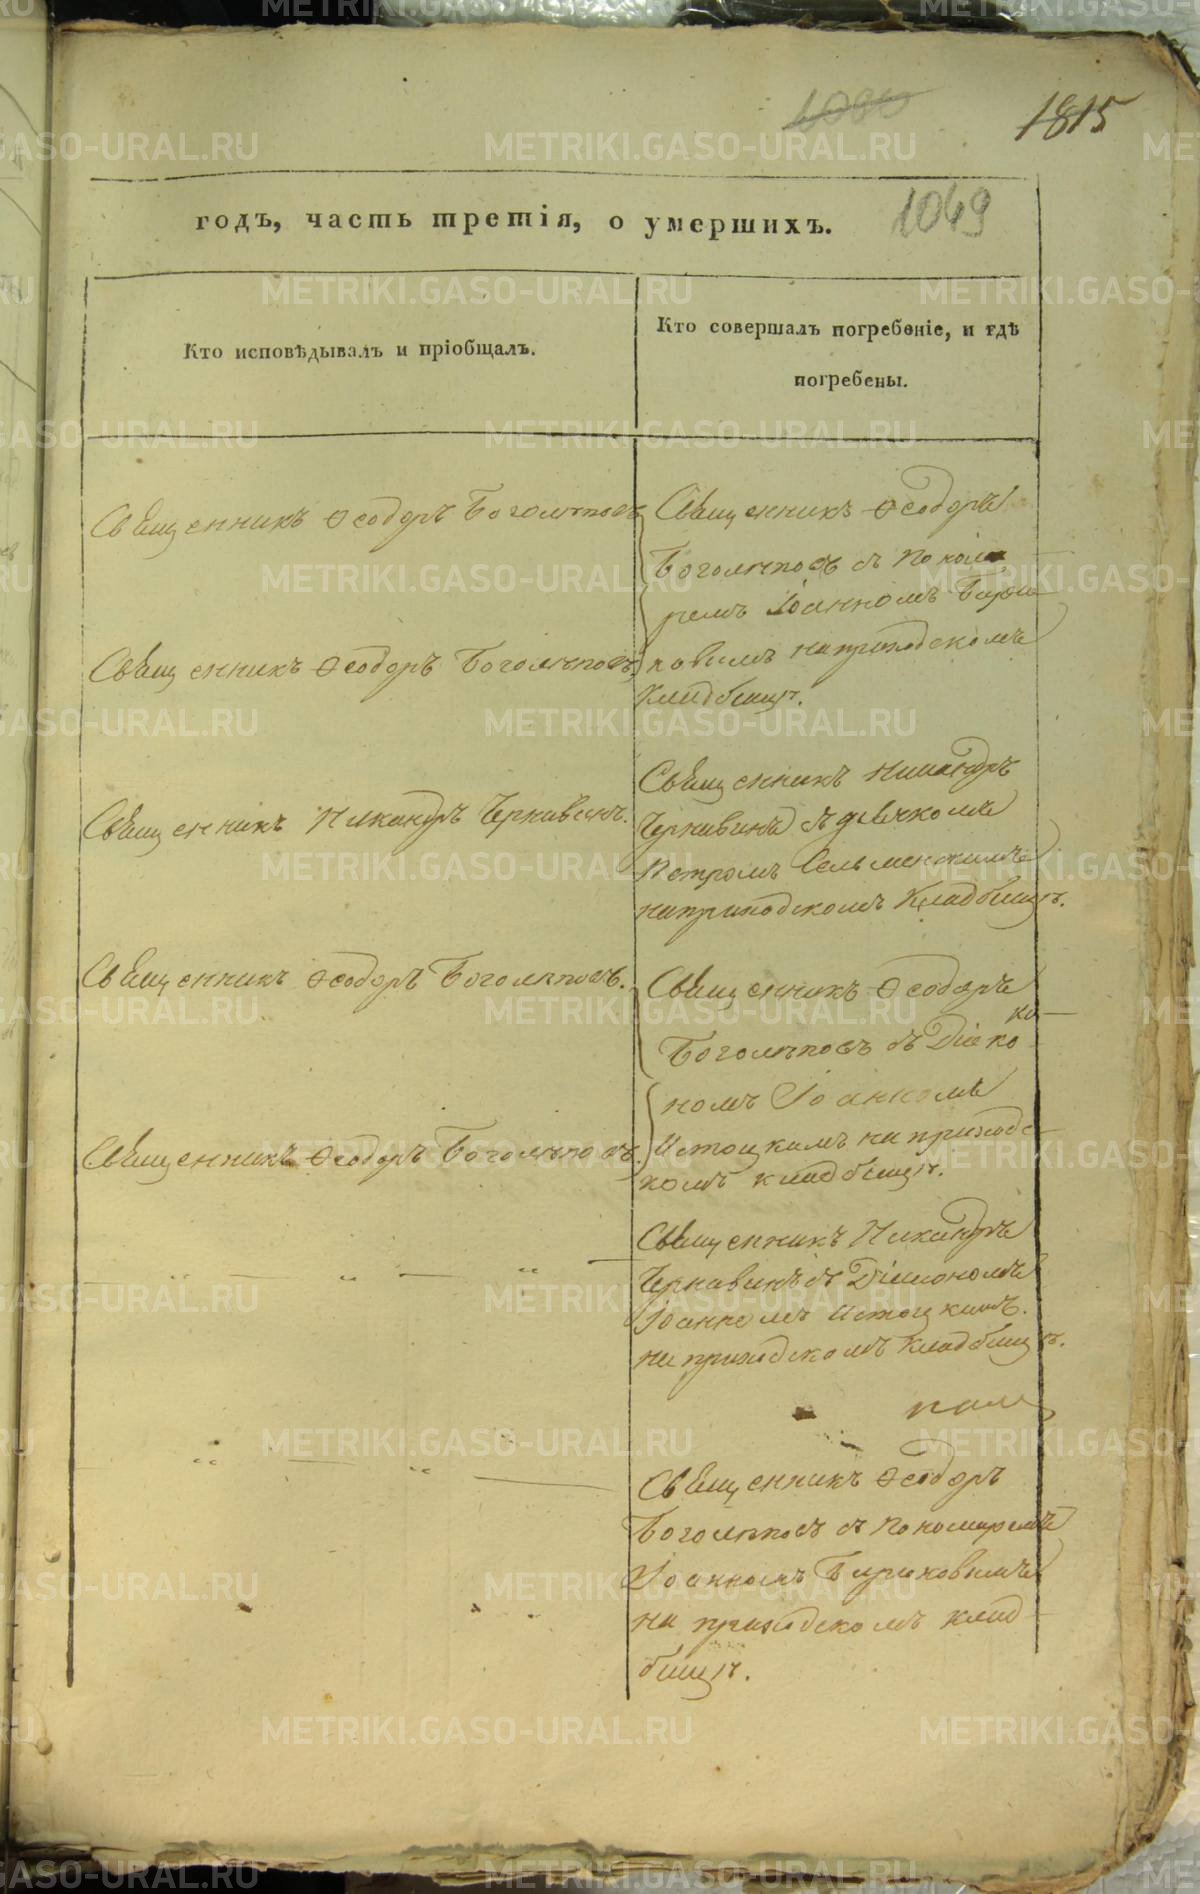 1815
1049
годъ, часть третія, о умершихъ.
Кто исповѣдывалъ и пріобщалъ.
Кто совершалъ погребеніе, и гдѣ
погребены.
Священникъ Ѳеодоръ Боголѣповъ
Священникъ Ѳеодоръ
Боголѣповъ съ Понома
ремъ Іоанномъ Бирю
ковымъ на приходскомъ
кладбищѣ.
Священникъ Ѳеодоръ Боголѣповъ
Священникъ Никандръ Чернавинъ.
Священникъ Никандръ
Чернавинъ съ дьячкомъ
Петромъ
на приходскомъ Кладбищѣ.
Священникъ Ѳеодоръ Боголѣповъ.
Священникъ Ѳеодоръ
Боголѣповъ съ Діако
номъ Іоанномъ
Истоцкимъ на приходс
комъ кладбищѣ.
Священникъ Ѳеодоръ Боголѣповъ.
Священникъ Никандръ
Чернавинъ съ Діакономъ
Іоанномъ Истоцкимъ.
на приходскомъ кладбищѣ.
Священникъ Ѳеодоръ
Боголѣповъ съ Пономаремъ
Іоанномъ Бирюковымъ
на приходскомъ клад
бищѣ.
METRIKI.GASO-URAL.RU